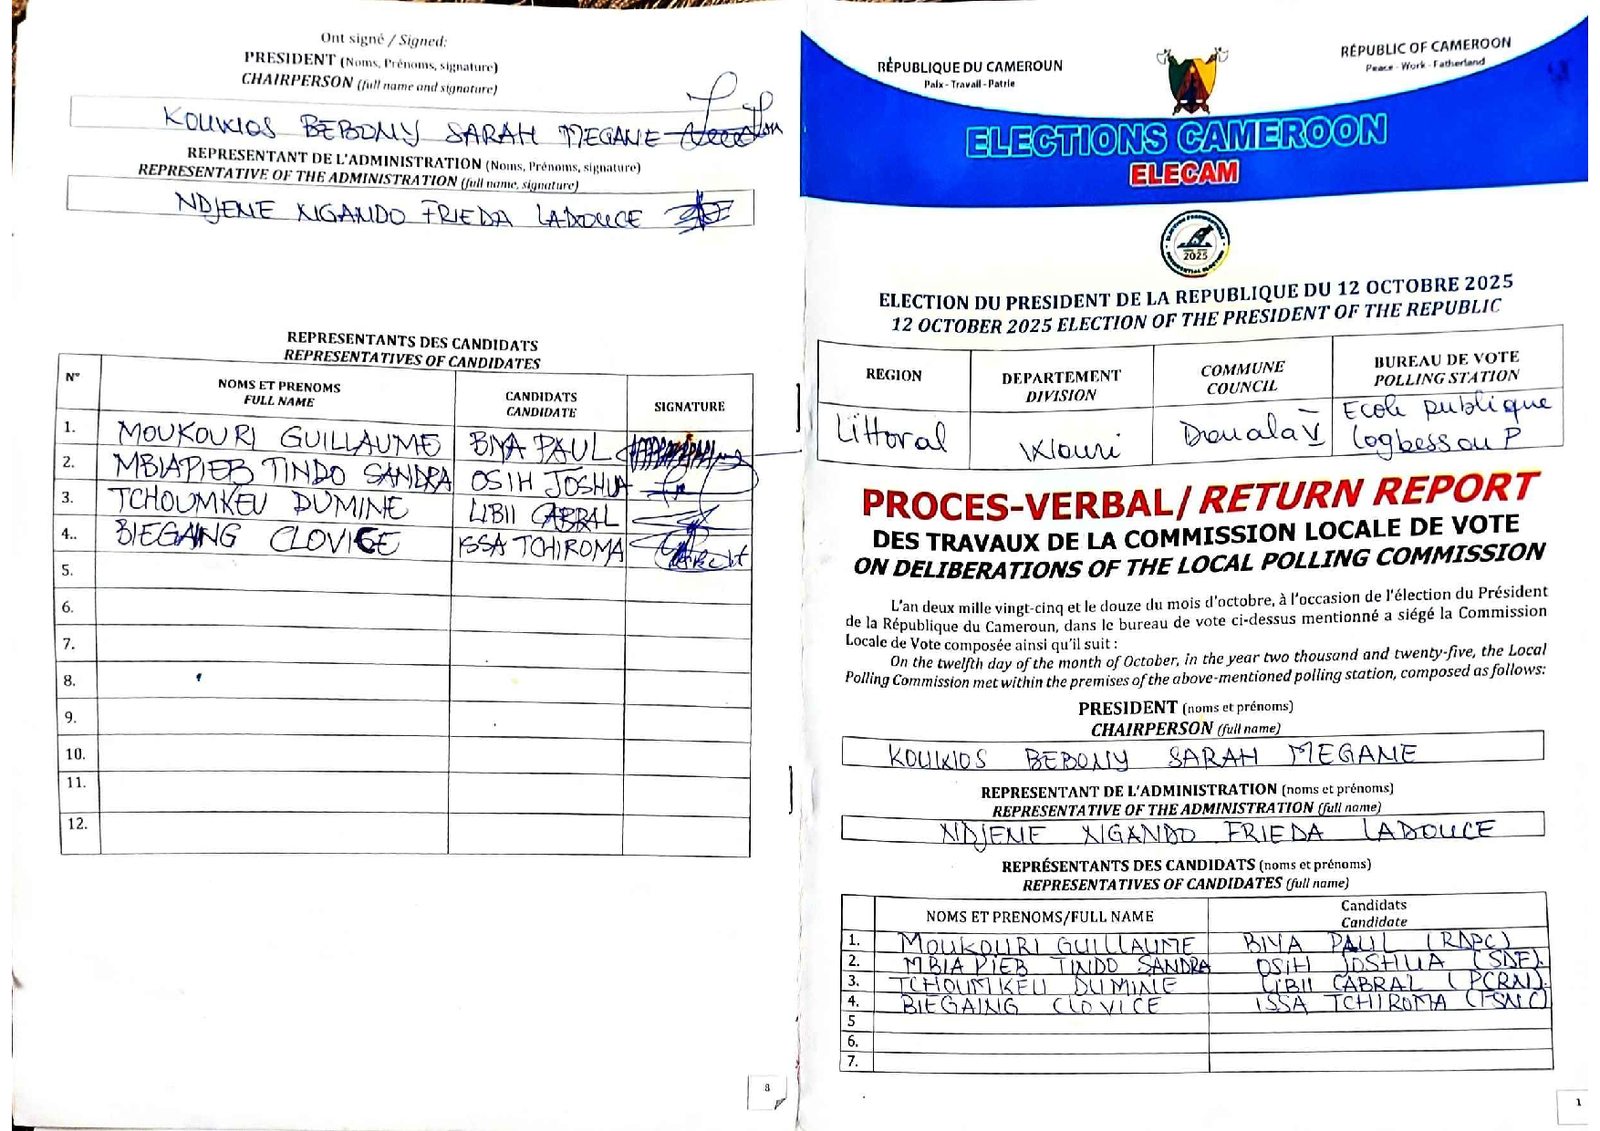 Ont signé / Signed:
PRESIDENT (Noms, Prénoms, signature)
CHAIRPERSON (full name and signature)
KOUKIOS BEBONY SARAH MEGANE
REPRESENTANT DE L'ADMINISTRATION (Noms, Prénoms, signature)
REPRESENTATIVE OF THE ADMINISTRATION (full name, signature)
NDJEME NGANDO FRIEDA LADOUCE
REPRESENTANTS DES CANDIDATS
REPRESENTATIVES OF CANDIDATES
N° NOMS ET PRENOMS CANDIDATS SIGNATURE
FULL NAME CANDIDATE
1. MOUKOURI GUILLAUME BIYA PAUL
2. MBIAPIEB TINDO SANDRA OSIH JOSHUA
3. TCHOUMKEU DUMINE LIBII CABRAL
4.. BIEGAING CLOVICE ISSA TCHIROMA
5.
6.
7.
8.
9.
10.
11.
12.
8
RÉPUBLIQUE DU CAMEROUN
Paix - Travail - Patrie
RÉPUBLIC OF CAMEROON
Peace - Work - Fatherland
ELECTIONS CAMEROON
ELECAM
2025
ELECTION DU PRESIDENT DE LA REPUBLIQUE DU 12 OCTOBRE 2025
12 OCTOBER 2025 ELECTION OF THE PRESIDENT OF THE REPUBLIC
REGION DEPARTEMENT COMMUNE BUREAU DE VOTE
DIVISION COUNCIL POLLING STATION
Littoral Wouri Douala V Ecole publique
Logbessou P
PROCES-VERBAL/ RETURN REPORT
DES TRAVAUX DE LA COMMISSION LOCALE DE VOTE
ON DELIBERATIONS OF THE LOCAL POLLING COMMISSION
L'an deux mille vingt-cinq et le douze du mois d'octobre, à l'occasion de l'élection du Président
de la République du Cameroun, dans le bureau de vote ci-dessus mentionné a siégé la Commission
Locale de Vote composée ainsi qu'il suit :
On the twelfth day of the month of October, in the year two thousand and twenty-five, the Local
Polling Commission met within the premises of the above-mentioned polling station, composed as follows:
PRESIDENT (noms et prénoms)
CHAIRPERSON (full name)
KOUKIOS BEBONY SARAH MEGANE
REPRESENTANT DE L'ADMINISTRATION (noms et prénoms)
REPRESENTATIVE OF THE ADMINISTRATION (full name)
NDJEME NGANDO FRIEDA LADOUCE
REPRÉSENTANTS DES CANDIDATS (noms et prénoms)
REPRESENTATIVES OF CANDIDATES (full name)
NOMS ET PRENOMS/FULL NAME Candidats
Candidate
1. MOUKOURI GUILLAUME BIYA PAUL (RDPC)
2. MBIA PIEB TINDO SANDRA OSIH JOSHUA (SDF).
3. TCHOUMKEU DUMINE LIBII CABRAL (PCRN).
4. BIEGAING CLOVICE ISSA TCHIROMA (FSNC)
5
6.
7.
1